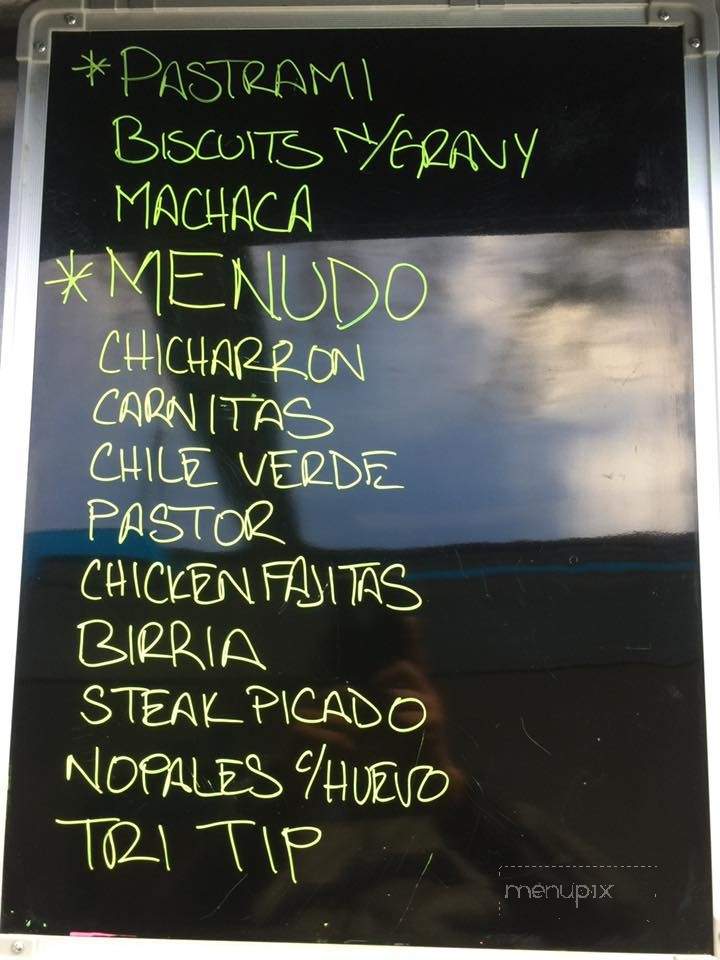 * PASTRAMI
BISCUITS N/GRAVY
MACHACA
* MENUDO
CHICHARRON
CARNITAS
CHILE VERDE
PASTOR
CHICKEN FAJITAS
BIRRIA
STEAK PICADO
NOPALES C/HUEVO
TRI TIP
menupix